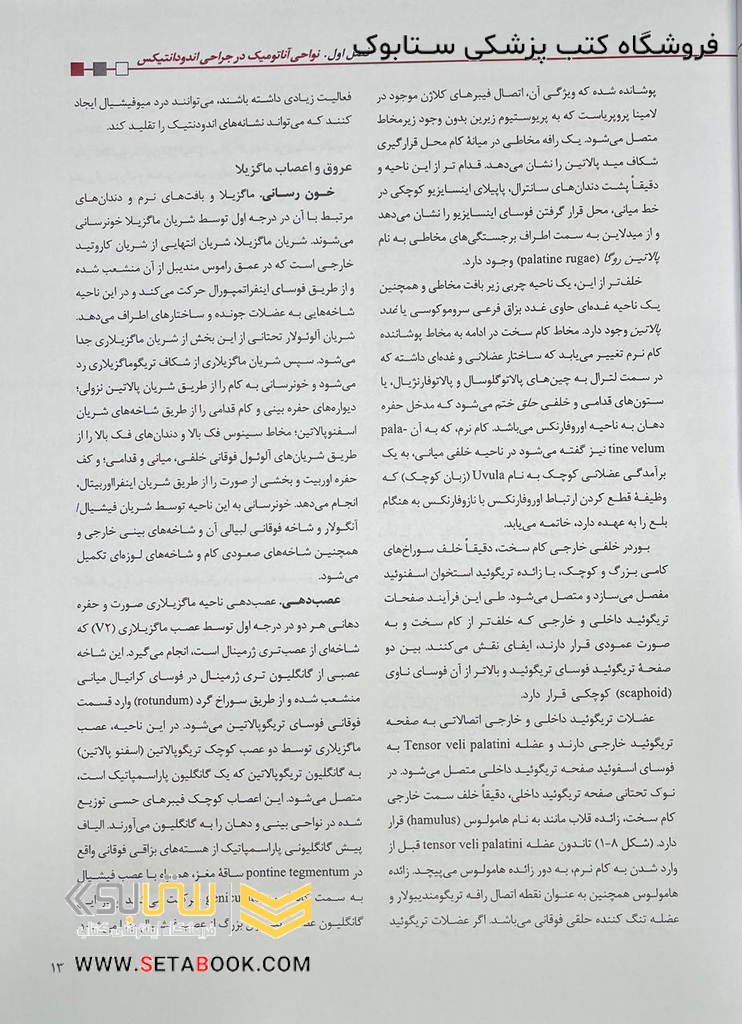 فروشگاه کتب پزشکی ستابوک
فصل اول. نواحی آناتومیک در جراحی اندودانتیکس
پوشانده شده که ویژگی آن، اتصال فیبرهای کلاژن موجود در
لامینا پروپریاست که به پریوستیوم زیرین بدون وجود زیرمخاط
متصل می‌شود. یک رافه مخاطی در میانهٔ کام محل قرارگیری
شکاف مید پالاتین را نشان می‌دهد. قدام تر از این ناحیه و
دقیقاً پشت دندان‌های سانترال، پاپیلای اینسایزیو کوچکی در
خط میانی، محل قرار گرفتن فوسای اینسایزیو را نشان می‌دهد
و از میدلاین به سمت اطراف برجستگی‌های مخاطی به نام
پالاتین روگا (palatine rugae) وجود دارد.
خلف‌تر از این، یک ناحیه چربی زیر بافت مخاطی و همچنین
یک ناحیه غده‌ای حاوی غدد بزاق فرعی سروموکوسی یا غدد
پالاتین وجود دارد. مخاط کام سخت در ادامه به مخاط پوشاننده
کام نرم تغییر می‌یابد که ساختار عضلانی و غده‌ای داشته که
در سمت لترال به چین‌های پالاتوگلوسال و پالاتوفارنژیال، یا
ستون‌های قدامی و خلفی حلق ختم می‌شود که مدخل حفره
دهان به ناحیه اوروفارنکس می‌باشد. کام نرم، که به آن pala-
tine velum نیز گفته می‌شود در ناحیه خلفی میانی، به یک
برآمدگی عضلانی کوچک به نام Uvula (زبان کوچک) که
وظیفهٔ قطع کردن ارتباط اوروفارنکس با نازوفارنکس به هنگام
بلع را به عهده دارد، خاتمه می‌یابد.
بوردر خلفی خارجی کام سخت، دقیقاً خلف سوراخ‌های
کامی بزرگ و کوچک، با زائده تریگوئید استخوان اسفنوئید
مفصل می‌سازد و متصل می‌شود. طی این فرآیند صفحات
تریگوئید داخلی و خارجی که خلف‌تر از کام سخت و به
صورت عمودی قرار دارند، ایفای نقش می‌کنند. بین دو
صفحهٔ تریگوئید فوسای تریگوئید و بالاتر از آن فوسای ناوی
(scaphoid) کوچکی قرار دارد.
عضلات تریگوئید داخلی و خارجی اتصالاتی به صفحه
تریگوئید خارجی دارند و عضله Tensor veli palatini به
فوسای اسفوئید صفحه تریگوئید داخلی متصل می‌شود. در
نوک تحتانی صفحه تریگوئید داخلی، دقیقاً خلف سمت خارجی
کام سخت، زائده قلاب مانند به نام هامولوس (hamulus) قرار
دارد. (شکل ۸-۱) تاندون عضله tensor veli palatini قبل از
وارد شدن به کام نرم، به دور زائده هامولوس می‌پیچد. زائده
هامولوس همچنین به عنوان نقطه اتصال رافه تریگومندیبولار و
عضله تنگ کننده حلقی فوقانی می‌باشد. اگر عضلات تریگوئید
فعالیت زیادی داشته باشند، می‌توانند درد میوفیشیال ایجاد
کنند که می‌تواند نشانه‌های اندودنتیک را تقلید کند.
عروق و اعصاب ماگزیلا
خون رسانی. ماگزیلا و بافت‌های نرم و دندان‌های
مرتبط با آن در درجه اول توسط شریان ماگزیلا خونرسانی
می‌شوند. شریان ماگزیلا، شریان انتهایی از شریان کاروتید
خارجی است که در عمق راموس مندیبل از آن منشعب شده
و از طریق فوسای اینفراتمپورال حرکت می‌کند و در این ناحیه
شاخه‌هایی به عضلات جونده و ساختارهای اطراف می‌دهد.
شریان آلوئولار تحتانی از این بخش از شریان ماگزیلاری جدا
می‌شود. سپس شریان ماگزیلاری از شکاف تریگوماگزیلاری رد
می‌شود و خونرسانی به کام را از طریق شریان پالاتین نزولی؛
دیواره‌های حفره بینی و کام قدامی را از طریق شاخه‌های شریان
اسفنوپالاتین؛ مخاط سینوس فک بالا و دندان‌های فک بالا را از
طریق شریان‌های آلوئول فوقانی خلفی، میانی و قدامی؛ و کف
حفره اوربیت و بخشی از صورت را از طریق شریان اینفرااوربیتال،
انجام می‌دهد. خونرسانی به این ناحیه توسط شریان فیشیال/
آنگولار و شاخه فوقانی لبیالی آن و شاخه‌های بینی خارجی و
همچنین شاخه‌های صعودی کام و شاخه‌های لوزه‌ای تکمیل
می‌شود.
عصب‌دهی. عصب‌دهی ناحیه ماگزیلاری صورت و حفره
دهانی هر دو در درجه اول توسط عصب ماگزیلاری (V۲) که
شاخه‌ای از عصب‌تری ژرمینال است، انجام می‌گیرد. این شاخه
عصبی از گانگلیون تری ژرمینال در فوسای کرانیال میانی
منشعب شده و از طریق سوراخ گرد (rotundum) وارد قسمت
فوقانی فوسای تریگوپالاتین می‌شود. در این ناحیه، عصب
ماگزیلاری توسط دو عصب کوچک تریگوپالاتین (اسفنو پالاتین)
به گانگلیون تریگوپالاتین که یک گانگلیون پاراسمپاتیک است،
متصل می‌شود. این اعصاب کوچک فیبرهای حسی توزیع
شده در نواحی بینی و دهان را به گانگلیون می‌آورند. الیاف
پیش گانگلیونی پاراسمپاتیک از هسته‌های بزاقی فوقانی واقع
در pontine tegmentum ساقهٔ مغز، همراه با عصب فیشیال
به سمت
گانگلیون
ستابوک
فروشگاه پزشکی کتاب
۱۳
WWW.SETABOOK.COM